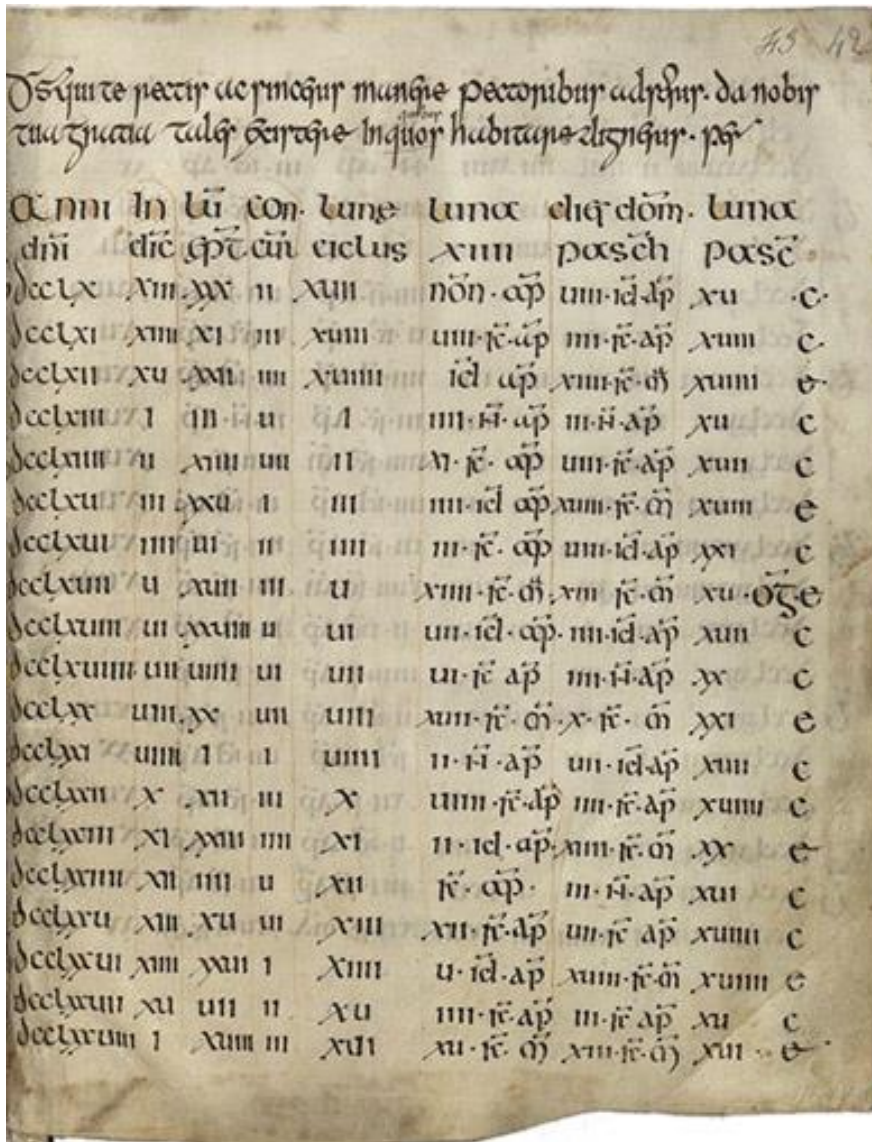 43 42
Ds qui te rectis ac sinceris manere pectoribus adseris. da nobis
quibus
tua gratia tales existere In quos habitare digneris. per
Anni In Lū Con. Lune Luna dies dom̄. Luna
dn̄i dic̄ ep̄t cīn ciclus xiiii pasch̄ pasc̄
dcclx xiii xxx ii xuii nōn. ap̄ uiii. id. ap̄ xu .c.
dcclxi xiiii xi iii xuiii uiiii. kl̄. ap̄ iiii. kl̄. ap̄ xuiii c.
dcclxii xu xxii iiii xuiiii id ap̄ xiiii. kl̄. m̄ xuiiii e.
dcclxiii i iii u i iiii. n̄. ap̄ iii. n̄. ap̄ xu c
dcclxiiii ii xiiii uii ii xi. kl̄. ap̄ uiii. kl̄. ap̄ xuii c
dcclxu iii xxu i iii iiii. id ap̄ xuiii. kl̄. m̄ xuiii e
dcclxui iiii ui ii iiii iii. kl̄. ap̄ uiii. id. ap̄ xxi c
dcclxuii u xuii iii u xiiii. kl̄. m̄ xiii kl̄. m̄ xu. ōg. e
dcclxuiii ui xxuiii u ui uii. id. ap̄. iiii. id. ap̄ xuii c
dcclxuiiii uii uiiii ui uii ui. kl̄ ap̄ iiii. n̄. ap̄ xx c
dcclxx uiii xx uii uiii xuii. kl̄. m̄. x. kl̄. m̄ xxi e
dcclxxi uiiii i i uiiii ii. n̄. ap̄ uii. id. ap̄ xuii c
dcclxxii x xii iii x uiiii. kl̄. ap̄ iiii. kl̄. ap̄ xuiiii c
dcclxxiii xi xxiii iiii xi ii. id. ap̄. xiiii. kl̄. m̄ xx e
dcclxxiiii xii iiii u xii kl̄. ap̄. iii. n̄. ap̄ xui c
dcclxxu xiii xu ui xiii xii. kl̄. ap̄ uii. kl̄ ap̄ xuiiii c
dcclxxui xiiii xxui i xiiii u. id. ap̄ xuiii. kl̄. m̄ xuiiii e
dcclxxuii xu uii ii xu iiii. kl̄. ap̄ iii. kl̄ ap̄ xu c
dcclxxuiii i xuiii iii xui xu. kl̄. m̄ xiii. kl̄. m̄ xui e